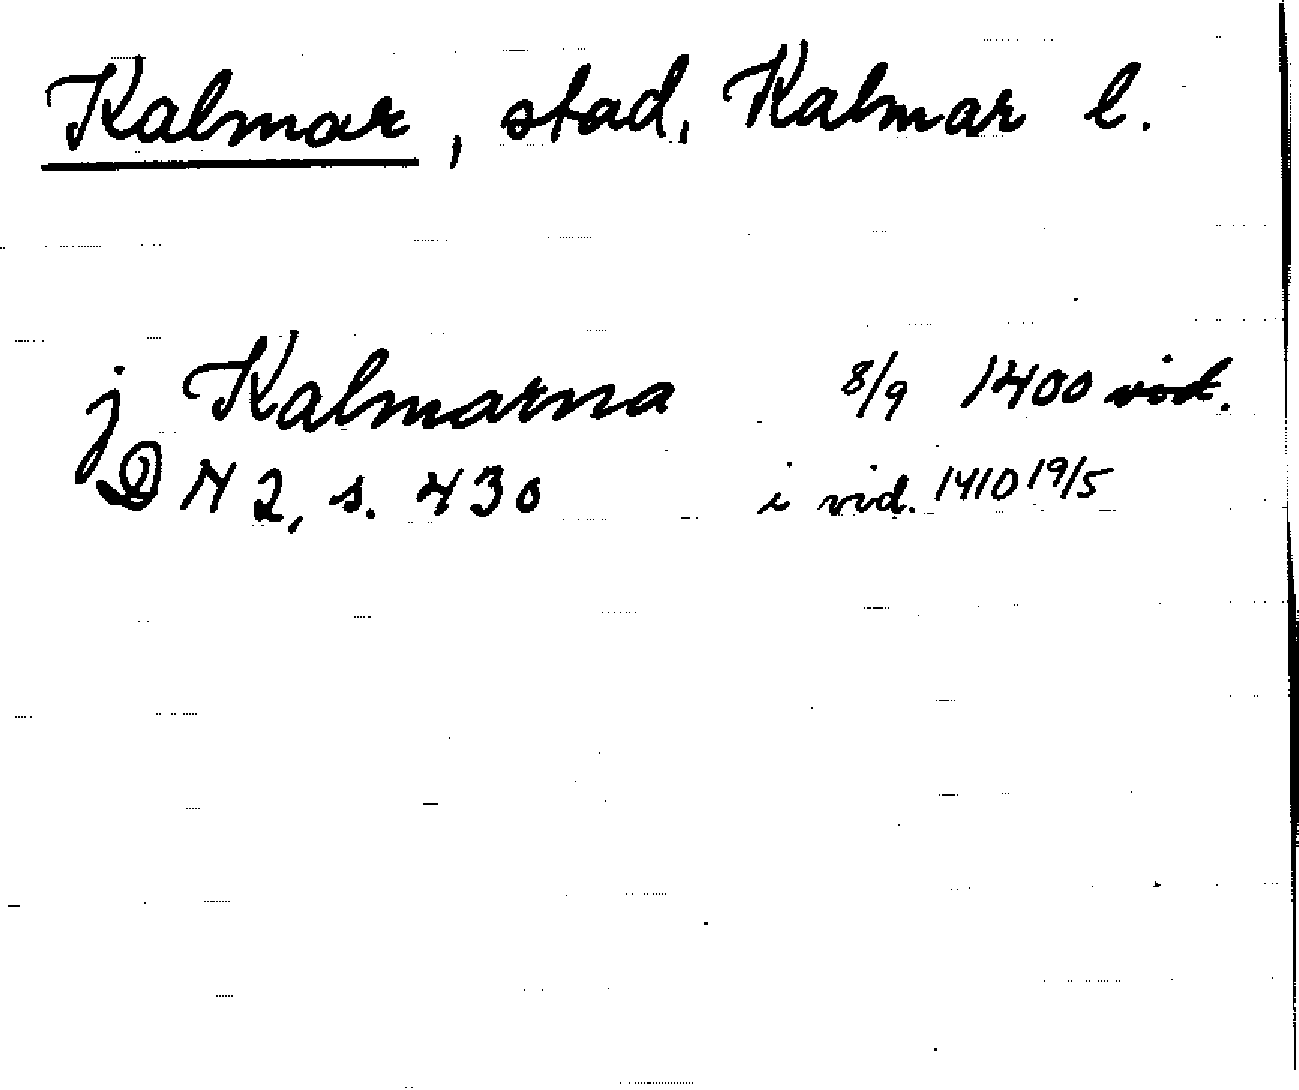 Kalmar, stad, Kalmar l.
j Kalmarna 8/9 1400 vid.
DN 2, s. 430 i vid. 1410 19/5